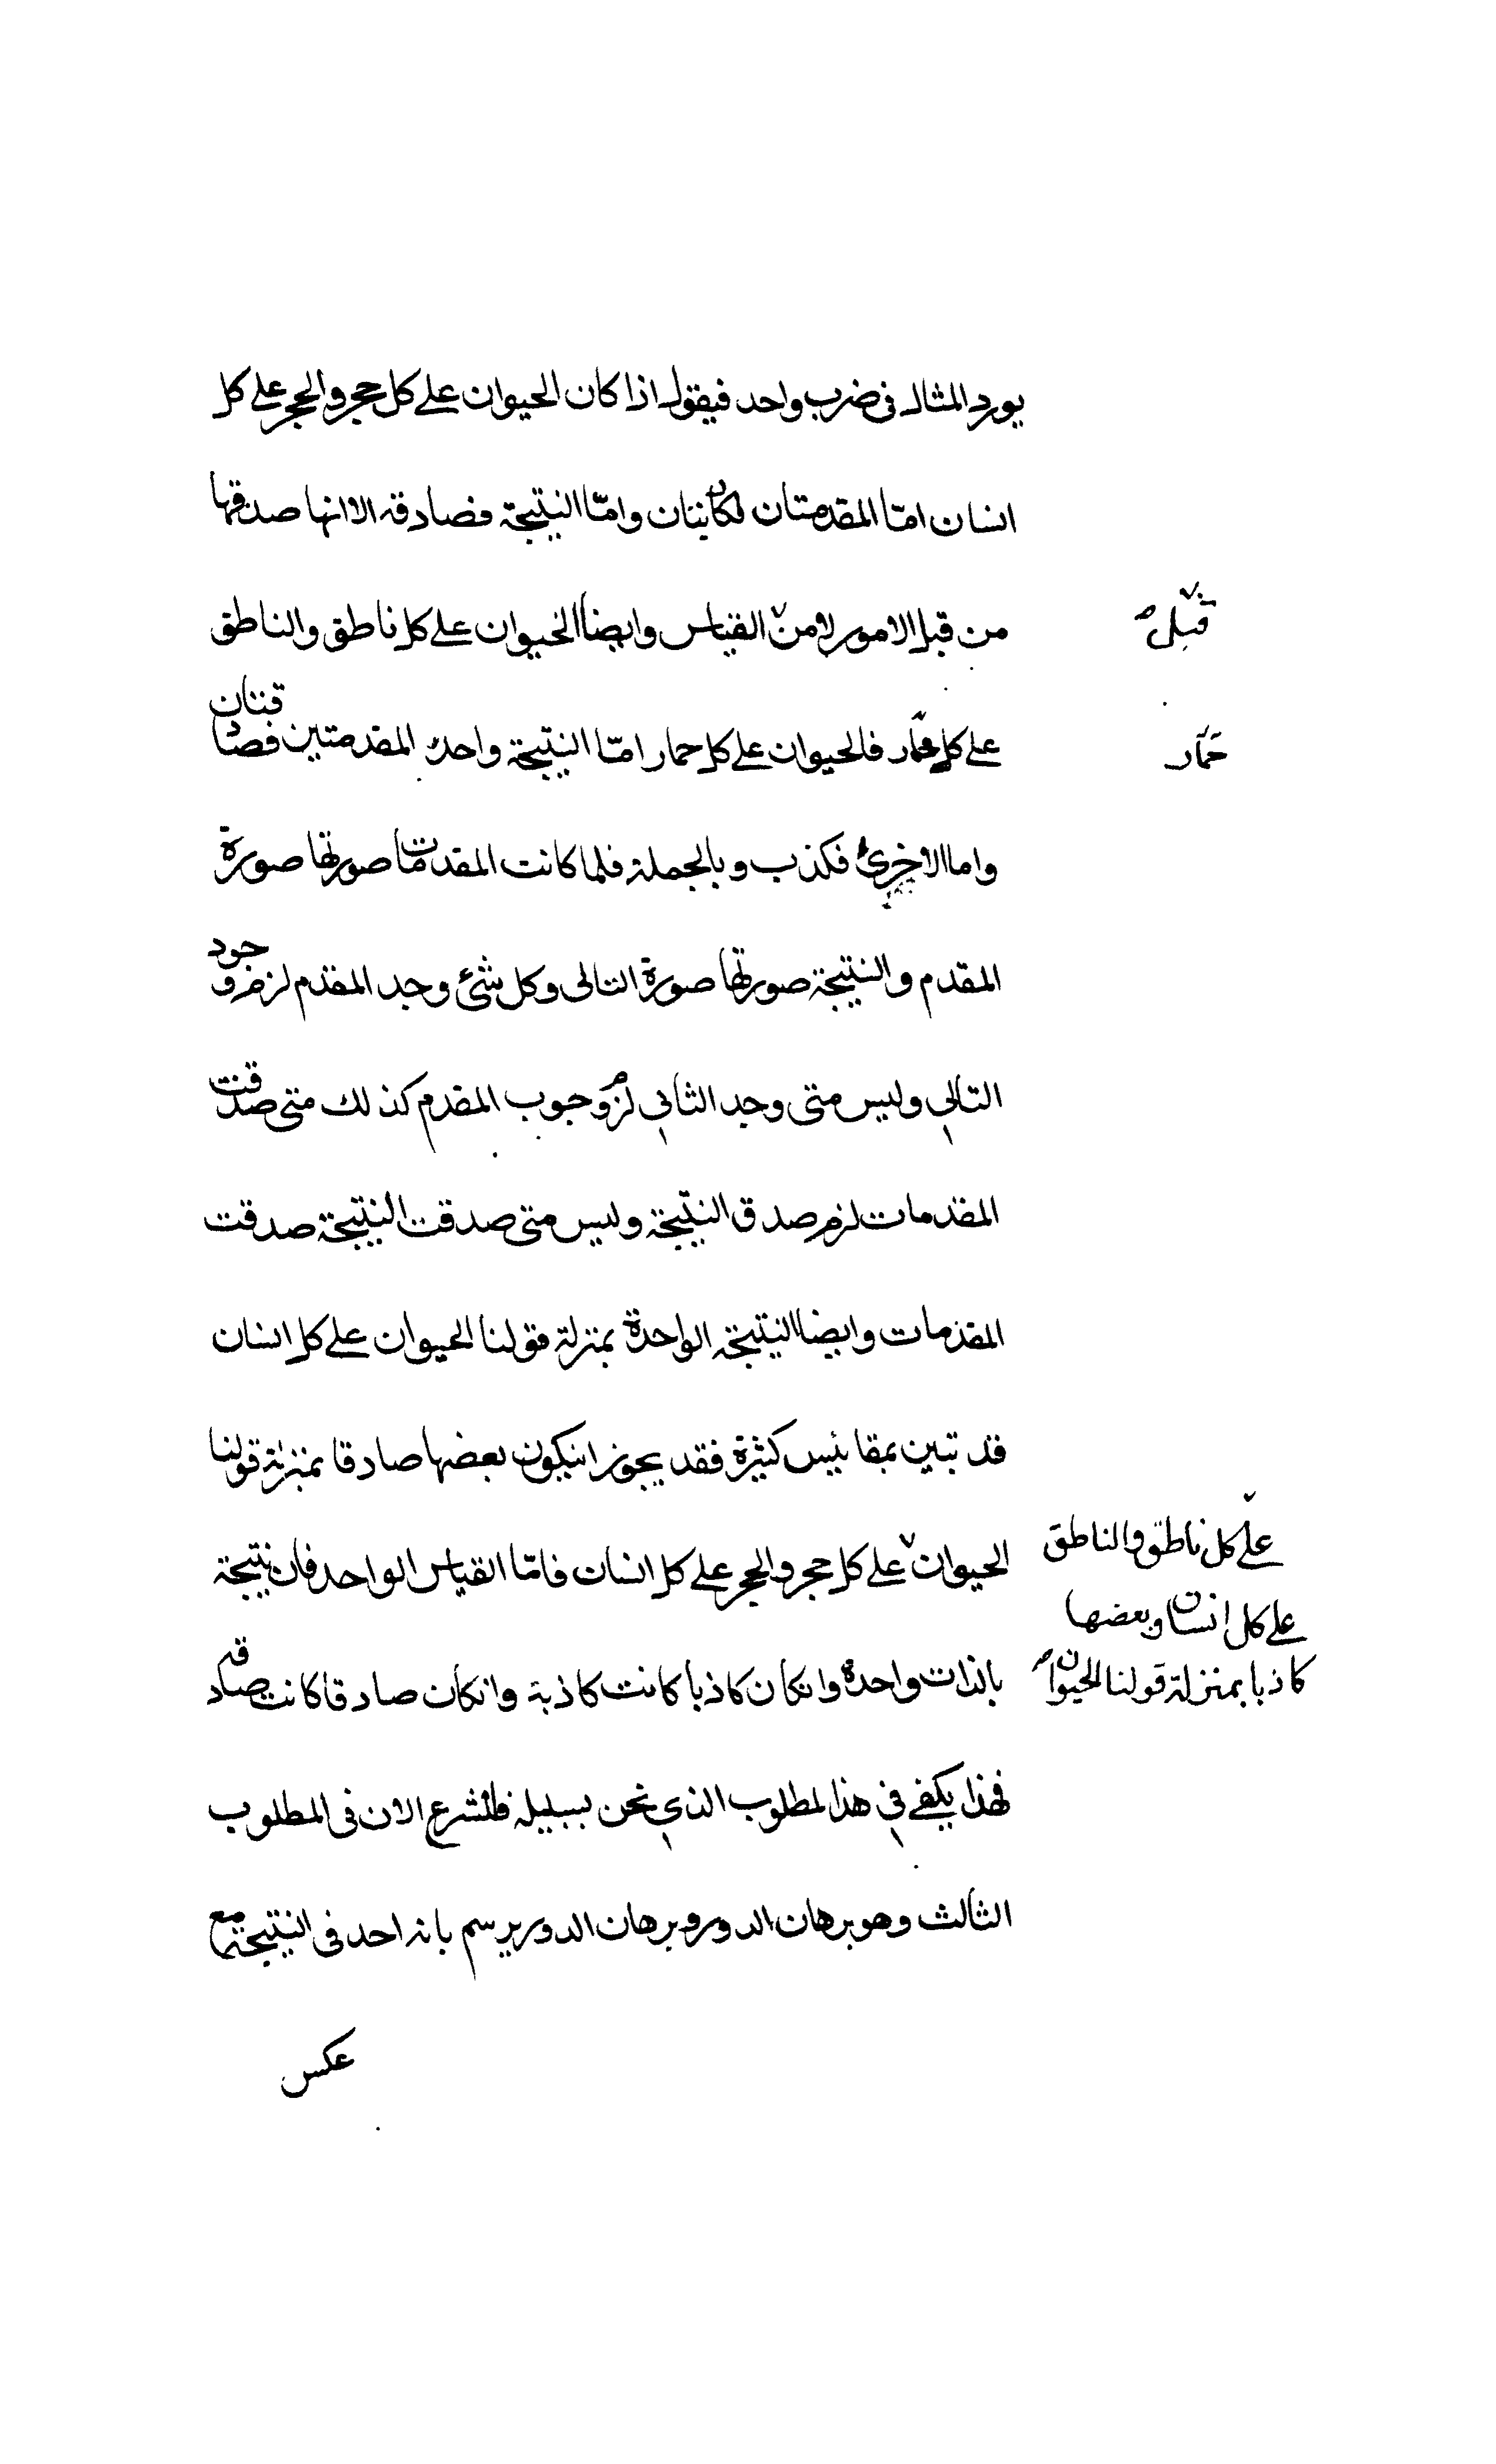 يورد المثال فى ضرب واحد فيقول اذا كان الحيوان على كل حجر والحجر على كل
انسان امّا المقدمتان فكاذبتان وامّا النتيجة فصادقه الا انها صدقها
من قبل الامور لا من القياس وايضا الحيوان على كل ناطق والناطق
قبل
على كل حمار فالحيوان على كل حمار امّا النتيجة واحدى المقدمتين فصادقتان
حمار
واما الاخرى فكذب وبالجملة فلما كانت المقدمات صورتها صورة
المقدم والنتيجة صورتها صورة التالى وكل شئ وجد المقدم لزم وجود
التالي وليس متى وجد الثاني لزم وجوب المقدم كذلك متى صدقت
المقدمات لزم صدق النتيجة وليس متى صدقت النتيجة صدقت
المقدمات وايضا النتيجة الواحدة بمنزلة قولنا الحيوان على كل انسان
قد تبين بمقائيس كثيرة فقد يجوز انيكون بعضها صادقا بمنزلة قولنا
الحيوان على كل حجر والحجر على كل انسان فامّا القياس الواحد فان نتيجة
على كل ناطق والناطق
على كل انسان وبعضها
كاذبا بمنزلة قولنا الحيوان
بالذات واحدة وانكان كاذبا كانت كاذبة وانكان صادقا كانت صادقه
فهذا يكفي في هذا المطلوب الذي نحن بسبيله فلنشرع الان فى المطلوب
الثالث وهو برهان الدور وبرهان الدور يرسم بانه احد فى النتيجة مع
عكس